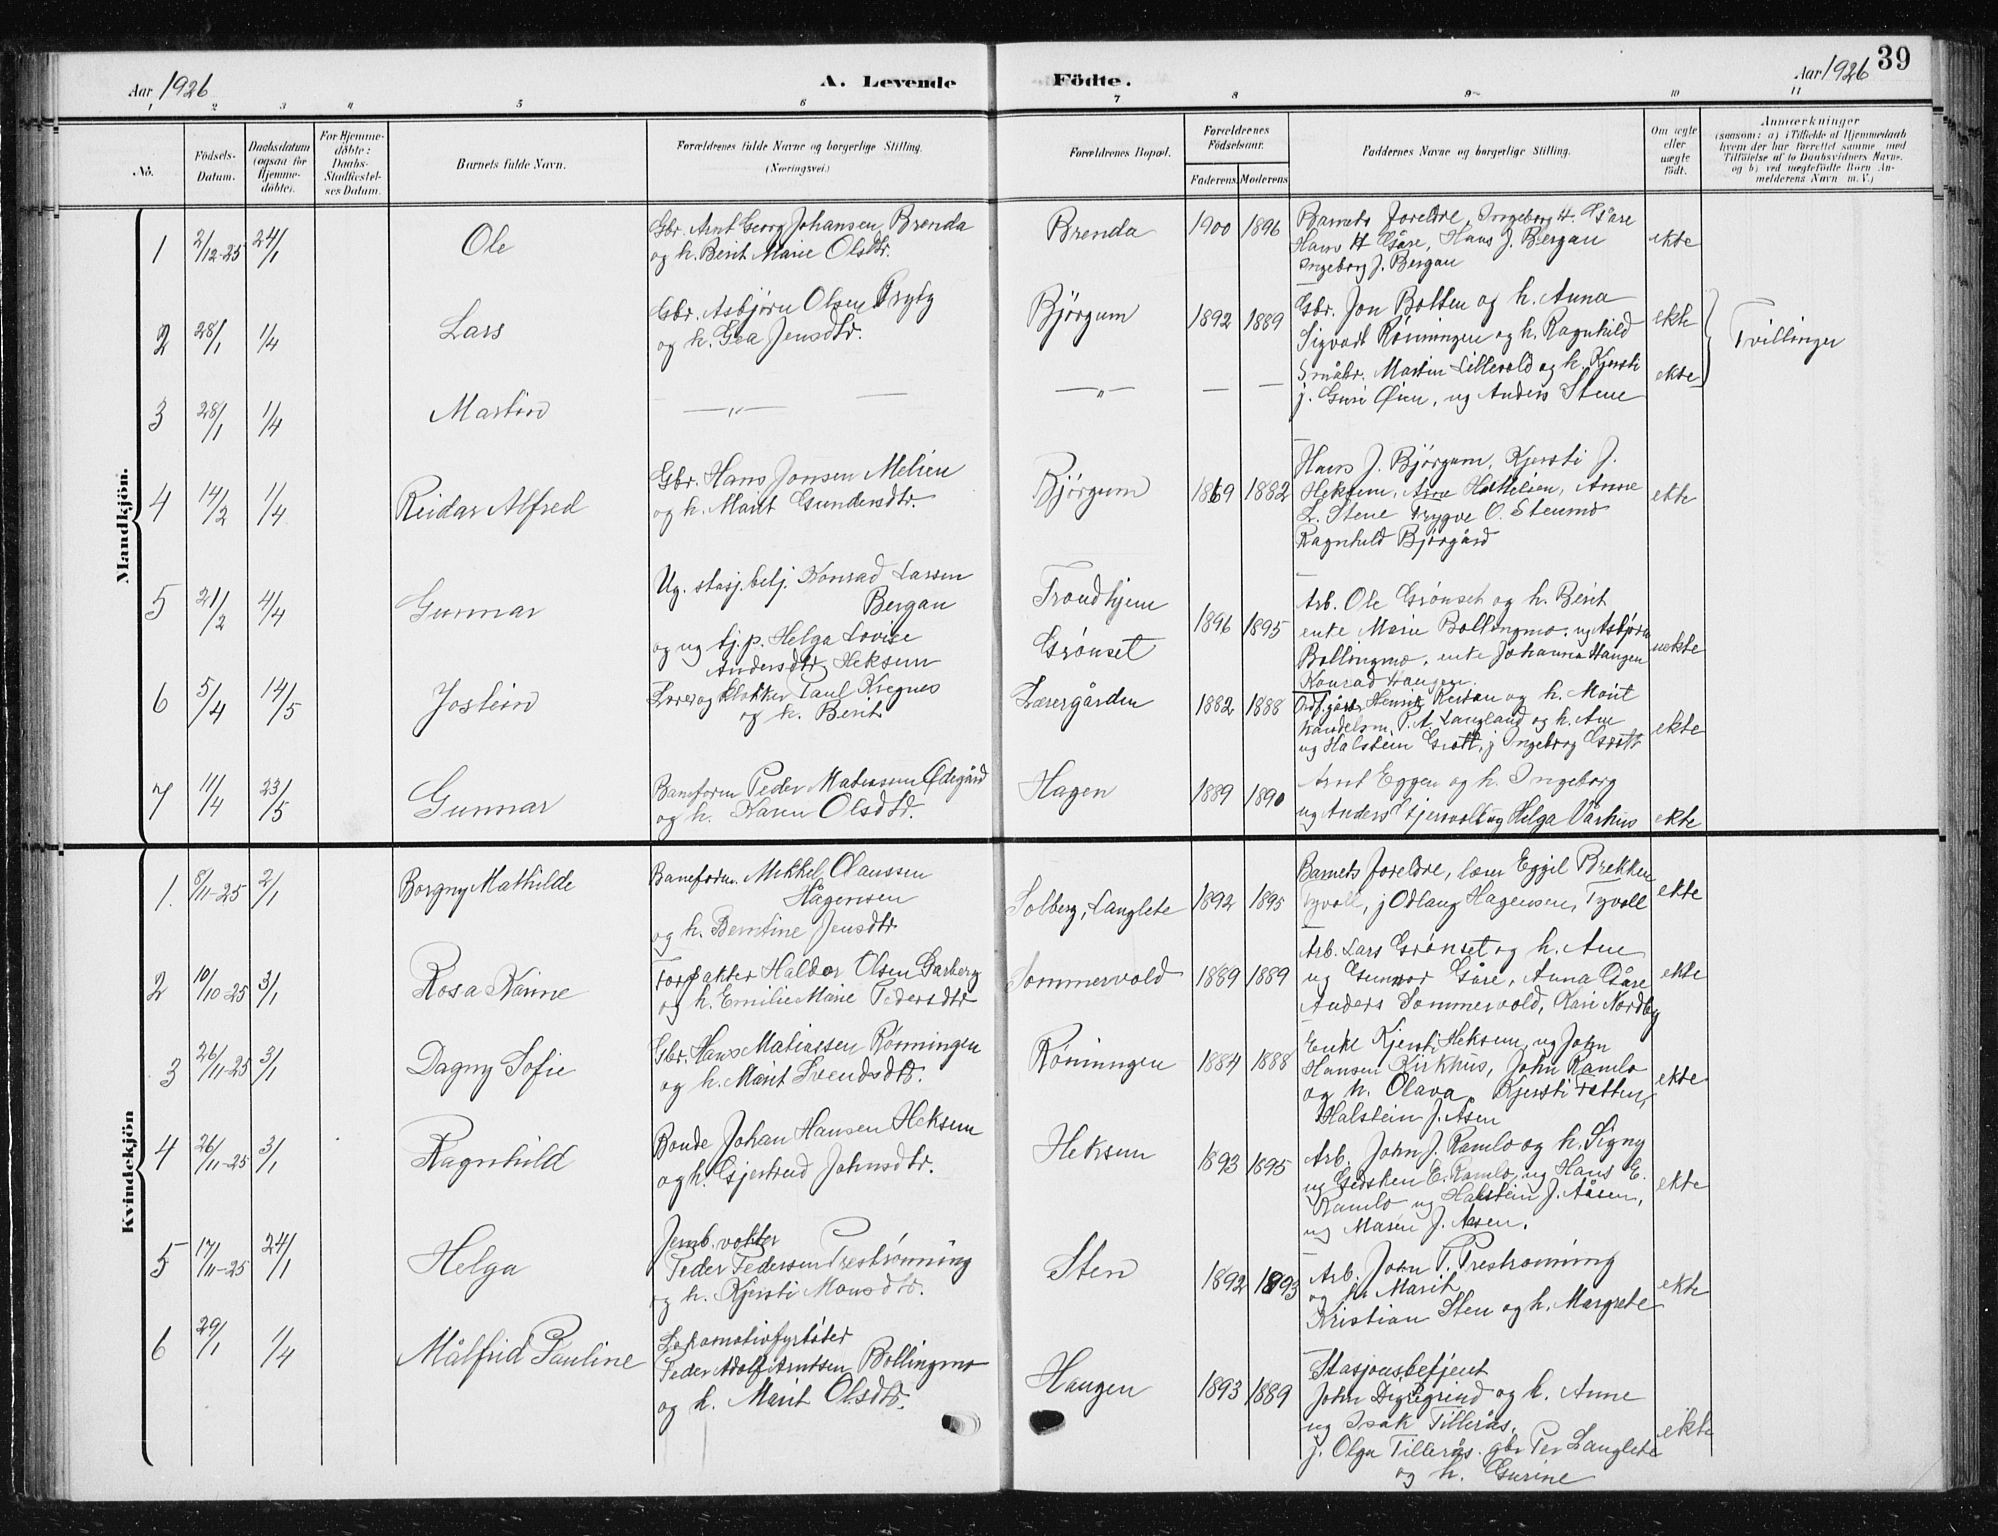 39
Aar 1926 A. Levende Födte. Aar 1926
1 2 3 4 5 6 7 8 9 10 11
No.
Födsels-
Datum.
Daabsdatum
(ogsaa for
Hjemme-
döbte).
For Hjemme-
döbte:
Daabs-
Stadfæstel-
ses Datum.
Barnets fulde Navn.
Forældrenes fulde Navne og borgerlige Stilling.
(Næringsvei.)
Forældrenes Bopæl.
Forældrenes
Födselsaar.
Faderens. Moderens
Faddernes Navne og borgerlige Stilling.
Om ægte
eller
uægte
födt.
Anmærkninger
(saasom: a) i Tilfælde af Hjemmedaab
hvem der har forrettet samme med
Tilföielse af to Daabsvidners Navne,
og b) ved uægtefödte Börn An-
melderens Navn m. V.)
Mandkjön.
1 2/12-25 24/1 Ole
Gbr. Arnt Georg Johansen Brenda
og h. Berit Marie Olsdtr.
Brenda 1900 1896
Barnets foreldre, Ingeborg H. Gåre
Hans H Gåre, Hans J. Bergan
Ingeborg J. Bergan
ekte
2 28/1 1/4 Lars
Gbr. Asbjørn Olsen Trytg
og h. Gea Jensdtr.
Bjørgum 1892 1889
Gbr. Jon Bolten og h. Anna
Sigvart Rønningen og h. Ragnhild
ekte
Tvillinger
3 28/1 1/4 Martin
— „ — —
— „ — — —
Småbr. Martin Lillevold og h. Kjersti
j. Guri Øien, ug Anders Stene
ekte
4 14/2 1/4 Reidar Alfred
Gbr. Hans Jonsen Melien
og h. Marit Gundersdtr.
Bjørgum 1869 1882
Hans J. Bjørgum, Kjersti J.
Heksem, Arne H. Melien, Anne
L. Stene Trygve O. Stenmo
Ragnhild Bjørgård
ekte
5 21/2 4/4 Gunnar
Ug. stasj.betj. Konrad Larsen
Bergan
og ug tj.p. Helga Lovise
Andersdtr. Heksem
Trondhjem
Grønset
1896 1895
Arb. Ole Grønset og h. Berit
enke Marie Bollingmo. ug Asbjørn
Bollingmo, enke Johanna Haugen
Konrad Haugen.
uekte
6 5/4 14/5 Jostein
Lærer og klokker Paul Kregnes
og h. Berit
Lærergården 1882 1888
Henrik Restan og h. Marit
handelsm. P. A. Langland og h. Ane
ug Halstein Grøtt, j Ingeborg Grøtt
ekte
7 11/4 23/5 Gunnar
Baneform Peder Matiassen Ødegård
og h. Karen Olsdtr.
Hagen 1889 1890
Arnt Eggen og h. Ingeborg
ug Anders Stjernvoll ug Helga Vårhus
ekte
Kvindekjön
1. 8/11-25 2/1 Borgny Mathilde
Baneform. Mikkel Olaussen
Hagensen
og h. Berntine Jensdtr
Solberg, Langlete 1892 1895
Barnets foreldre, lærer Eggil Brekken
Tyvoll, j Odlaug Hagensen, Tyvoll
ekte
2 10/10-25 3/1 Rosa Karine
Forpakter Haldor Olsen Garberg
og h. Emilie Marie Pedersdtr
Sommervold 1889 1889
Arb. Lars Grønset og h. Ane
ug Gunnor Gåre, Anna Gåre
Anders Sommervold, Kari Nordby
ekte
3 26/11-25 3/1 Dagny Sofie
Gbr. Hans Matiassen Rønningen
og h. Marit Svendsdtr.
Rønningen 1884 1888
Enke Kjersti Heksem, ug John
Hansen Kirkhus, John Ramlo
og h. Olava, Kjersti Fetten,
Halstein J. Åsen
ekte
4 26/11-25 3/1 Ragnhild
Bonde Johan Hansen Heksem
og h. Gjertrud Johnsdtr.
Heksem 1893 1895
Arb. John J. Ramlo og h. Signy
ug Gedsken E. Ramlo, ug Hans E.
Ramlo ug Halstein J. Åsen,
ug Maren J. Åsen.
ekte
5 17/11-25 24/1 Helga
Jernb. vokter
Peder Pedersen Prestrønning
og h. Kjersti Monsdtr.
Sten 1892 1893
Arb. John P. Prestrønning
og h. Marit
Kristian Sten og h. Margrete
ekte
6 29/1 1/4 Målfrid Pauline
Lokomotivfyrbøter
Peder Adolf Arntsen Bollingmo
og h. Marit Olsdtr.
Haugen 1893 1889
Stasjonsbetjent
John Digregrind og h. Anne
ug Isak Tillerås,
j. Olga Tillerås. gbr Per Langlete
og h. Gurine
ekte